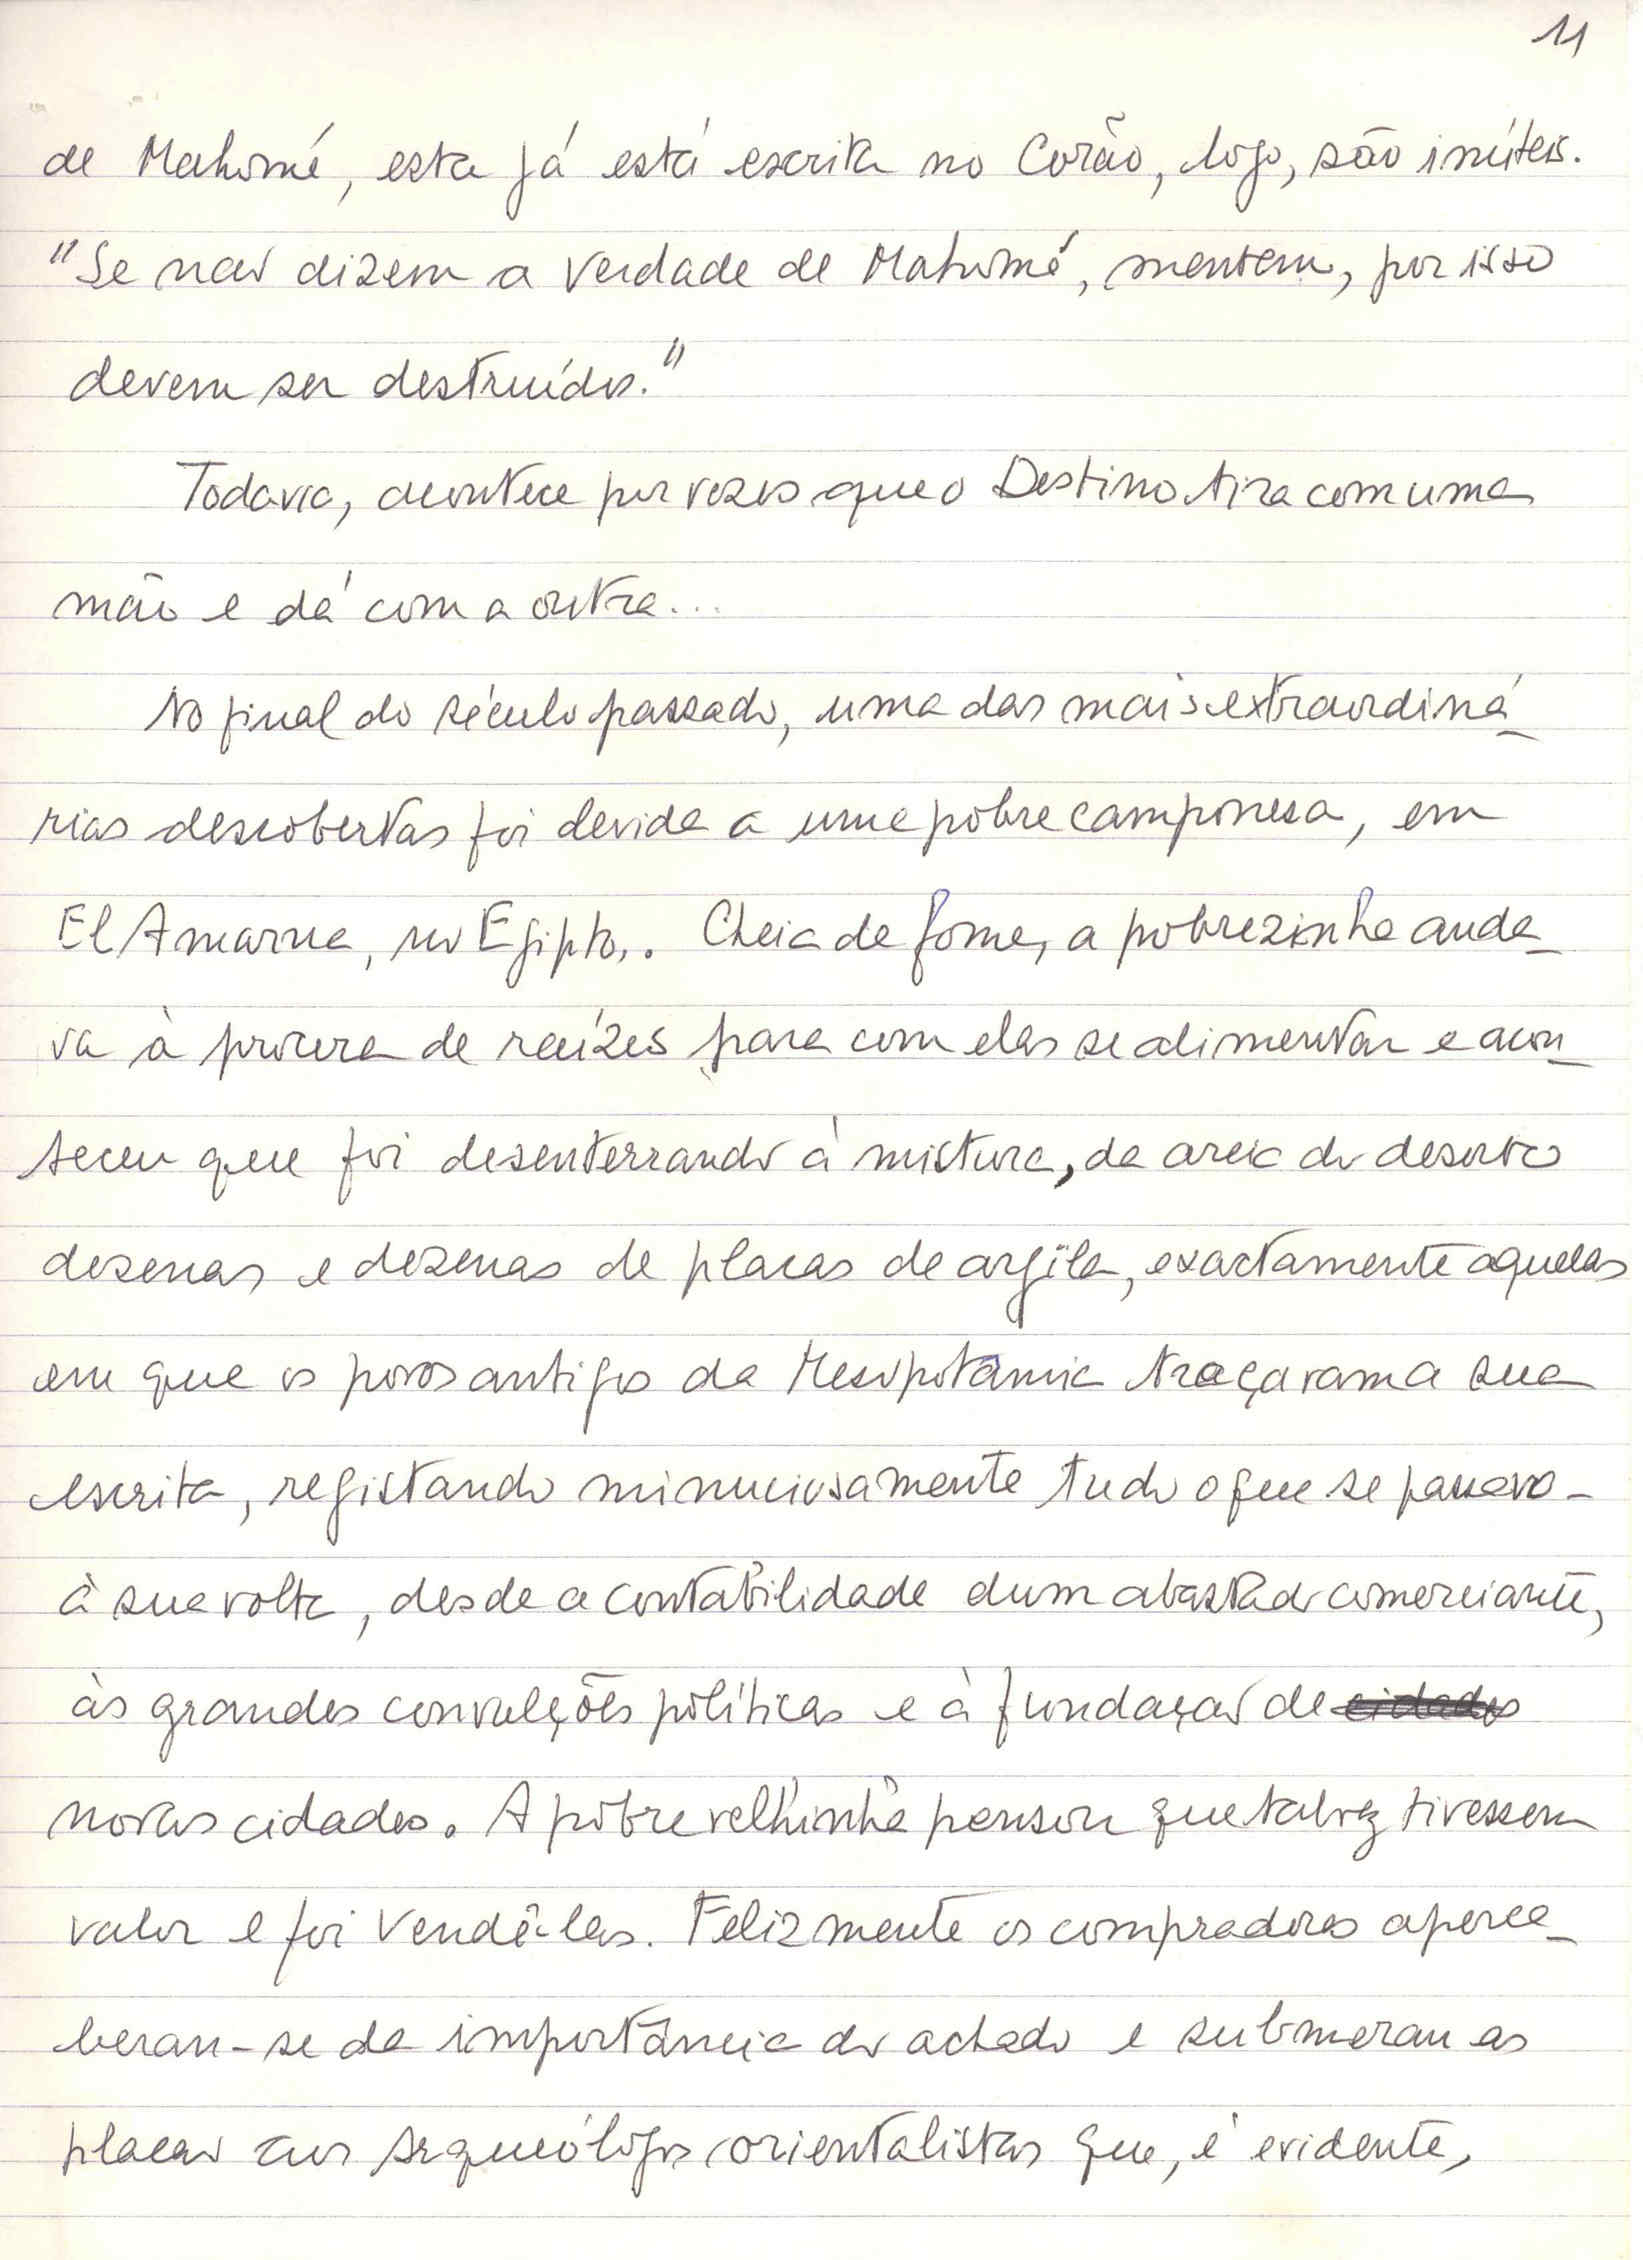 11
de Mahomé, esta já está escrita no Corão, logo, são inúteis.
"Se não dizem a verdade de Mahomé, mentem, por isso
devem ser destruídos."
Todavia, acontece por vezes que o Destino tira com uma
mão e dá com a outra...
No final do século passado, uma das mais extraordiná_
rias descobertas foi devida a uma pobre camponesa, em
El Amarna, no Egipto,. Cheia de fome, a pobrezinha anda_
va à procura de raízes para com elas se alimentar e acon_
teceu que foi desenterrando à mistura, da areia do deserto
dezenas e dezenas de placas de argila, exactamente aquelas
em que os povos antigos da Mesopotâmia traçaram a sua
escrita, registando minuciosamente tudo o que se passava
à sua volta, desde a contabilidade dum abastado comerciante,
às grandes convulções políticas e à fundação de cidades
novas cidades. A pobre velhinha pensou que talvez tivessem
valor e foi vendê-las. Felizmente os compradores aperce_
beram-se da importância do achado e submeram as
placas aos arqueólogos orientalistas que, é evidente,